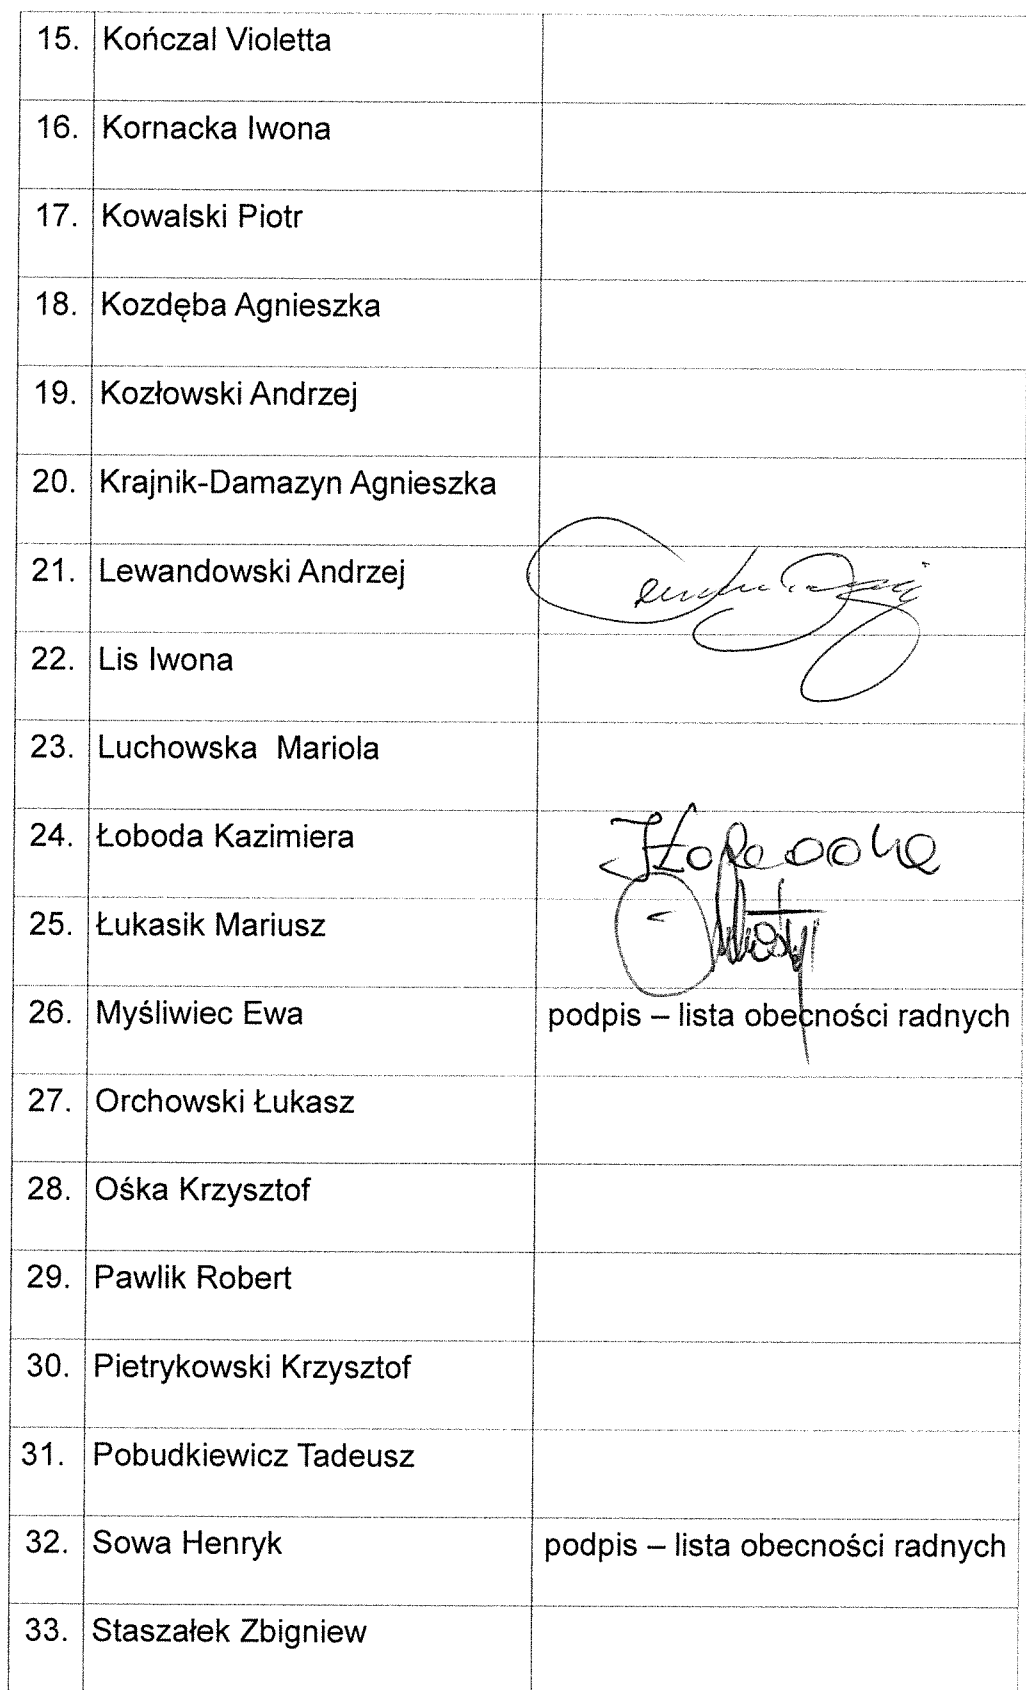 15. Kończal Violetta
16. Kornacka Iwona
17. Kowalski Piotr
18. Kozdęba Agnieszka
19. Kozłowski Andrzej
20. Krajnik-Damazyn Agnieszka
21. Lewandowski Andrzej
22. Lis Iwona
23. Luchowska Mariola
24. Łoboda Kazimiera
25. Łukasik Mariusz
26. Myśliwiec Ewa podpis – lista obecności radnych
27. Orchowski Łukasz
28. Ośka Krzysztof
29. Pawlik Robert
30. Pietrykowski Krzysztof
31. Pobudkiewicz Tadeusz
32. Sowa Henryk podpis – lista obecności radnych
33. Staszałek Zbigniew